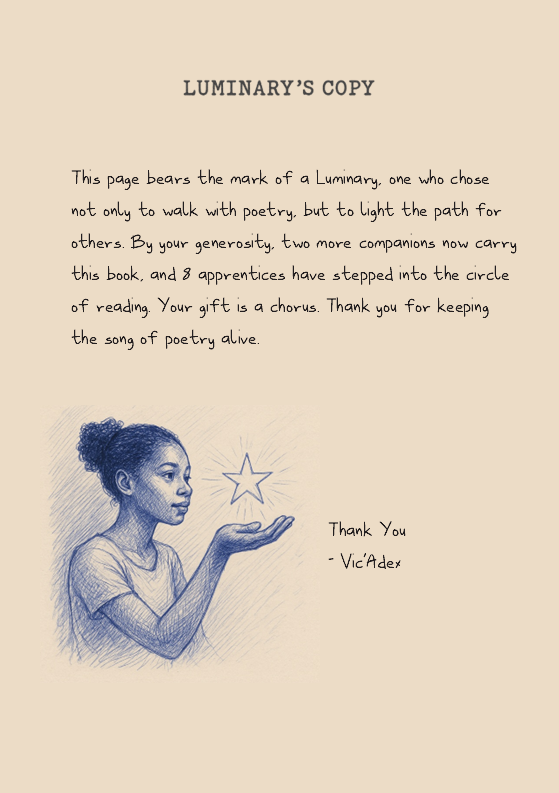 LUMINARY'S COPY
This page bears the mark of a Luminary, one who chose
not only to walk with poetry, but to light the path for
others. By your generosity, two more companions now carry
this book, and 8 apprentices have stepped into the circle
of reading. Your gift is a chorus. Thank you for keeping
the song of poetry alive.
Thank You
- Vic'Adex